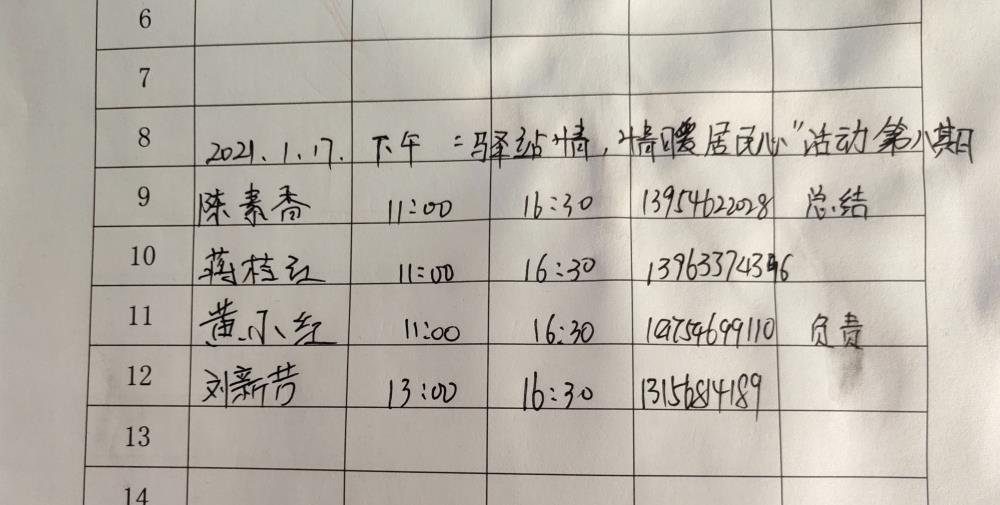 6
7
8 2021.1.17. 下午 "驿站情,情暖居民心"活动第八期
9 陈素香 11:00 16:30 13954622028 总结
10 蒋桂红 11:00 16:30
11 黄小红 11:00 16:30 负责
12 刘新芳 13:00 16:30 13156814189
13
14